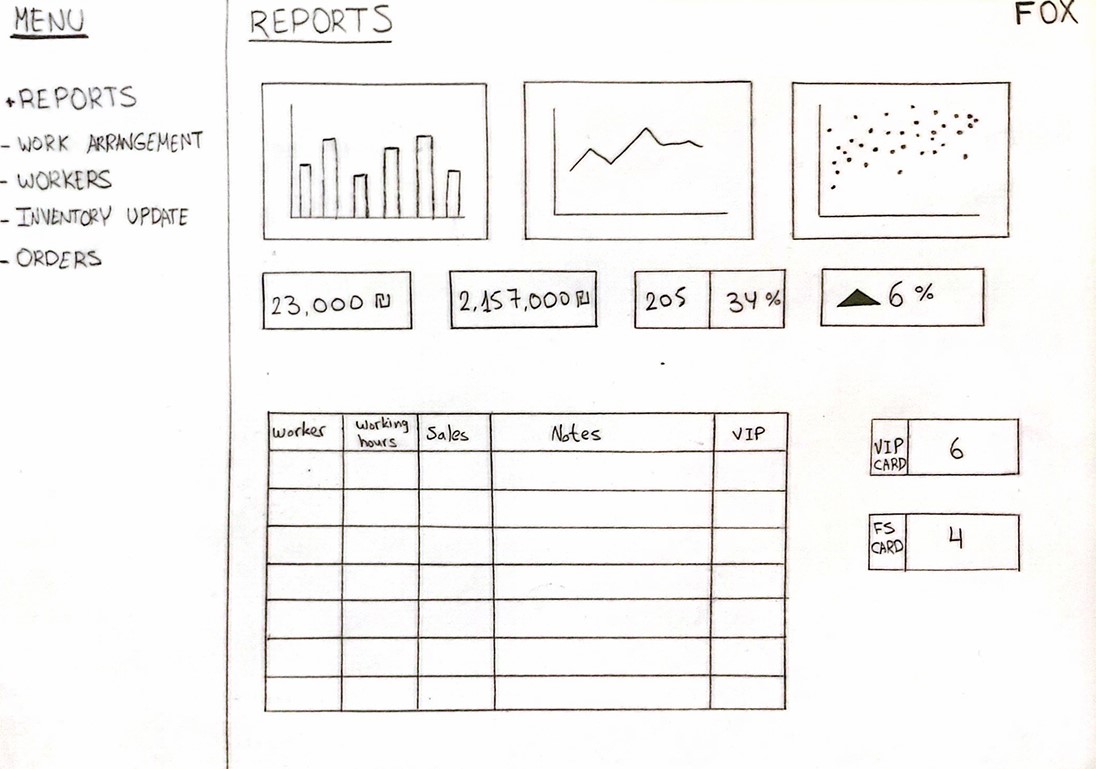 MENU
REPORTS
FOX
+REPORTS
- WORK ARRANGEMENT
- WORKERS
- INVENTORY UPDATE
- ORDERS
23,000 ₪
2,157,000 ₪
205
34 %
6 %
Worker
Working
hours
Sales
Notes
VIP
VIP
CARD
6
FS
CARD
4